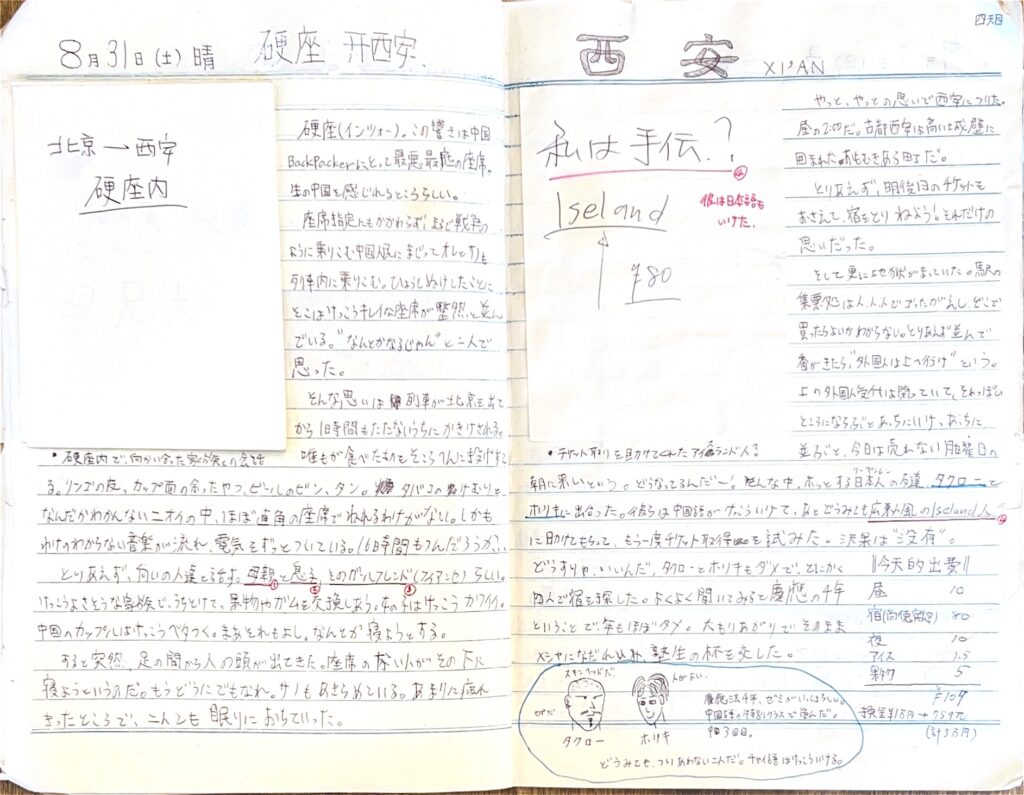 8月31日(土)晴 硬座 开西安.
北京→西安
硬座内
硬座(インツォー)。この響きは中国
BackPackerにとって最悪最低の座席。
生の中国を感じれるところらしい。
座席指定にもかかわらず、まるで戦争の
ように乗りこむ中国人民にまじってオレとサノも
列車内に乗りこむ。ひょうしぬけしたことに
そこはけっこうキレイな座席が整然と並ん
でいる。"なんとかなるじゃん"と二人で
思った。
そんな思いは列車が北京を出て
から1時間もたたないうちにかきけされる。
・硬座内で、向かい合った家族との会話
誰もが食べたものをそこらへんに投げすて
る。リンゴの皮、カップ面の余ったやつ、ビールのビン、タン。タバコのけむりと、
なんだかわかんないニオイの中、ほぼ直角の座席でねれるわけがない。しかも
わけのわからない音楽が流れ、電気もずっとついている。16時間もつんだろうか…
とりあえず、向いの人達と話す。母親と息子、そのガールフレンド(フィアンセ)らしい。
① ② ③
けっこうよさそうな家族で、うちとけて、果物やガムを交換しあう。女の子はけっこうカワイイ。
中国のカップルはけっこうベタつく。まあそれもよし。なんとか寝ようとする。
すると突然、足の間から人の頭が出てきた。座席のない人がその下に
寝ようというのだ。もうどうにでもなれ。サノもあきらめている。あまりに疲れ
きったところで、二人とも眠りにおちていった。
四日目
西安 XI'AN
私は手伝.?
④
Iseland
彼は日本語も
いけた。
¥80
・チケット取りを助けてくれたアイスランド人?
やっと、やっとの思いで西安についた。
昼の2時だ。古都西安は高い城壁に
囲まれた、おもむきある町だ。
とりあえず、明後日のチケットを
おさえて、宿をとりねよう!それだけの
思いだった。
そして更に地獄がまっていた。駅の
集票処は人、人、人でごったがえし、どこで
買ったらよいかわからない。とりあえず並んで
番がきたら、"外国人は上へ行け"という。
上の外国人受付は閉っていて、それっぽい
ところにならぶと、あっちにいけ、あっちに
並ぶと、今日は売れない月曜日の
朝に来いという。どうなってるんだ〜。そんな中、ホッとする日本人の友達、タクローと
ホリキに出会った。彼らは中国語がけっこういけて、あとどうみても広東人風のIseland人
④
に助けてもらって、もう一度チケット取得を試みた。結果は"没有"。
どうすりゃ、いいんだ、タクローとホリキもダメで、とにかく
四人で宿を探した。よくよく聞いてみると慶應の4年
ということで、年もほぼタメ。大もりあがりでそのまま
メシヤになだれ込み、塾生の杯を交した。
‖今天的出費‖
昼 10
宿 80
夜 10
アイス 1.5
果物 5
¥107
換金率1万円→759元
(計3万円)
スキンヘッドだ
人がよい
タクロー ホリキ
慶應法4年、ゼミがいっしょらしい。
中国語の特別クラスで学んだ。
中国3回目。
どうみても、つりあわない二人だ。チャイ語はけっこういける。